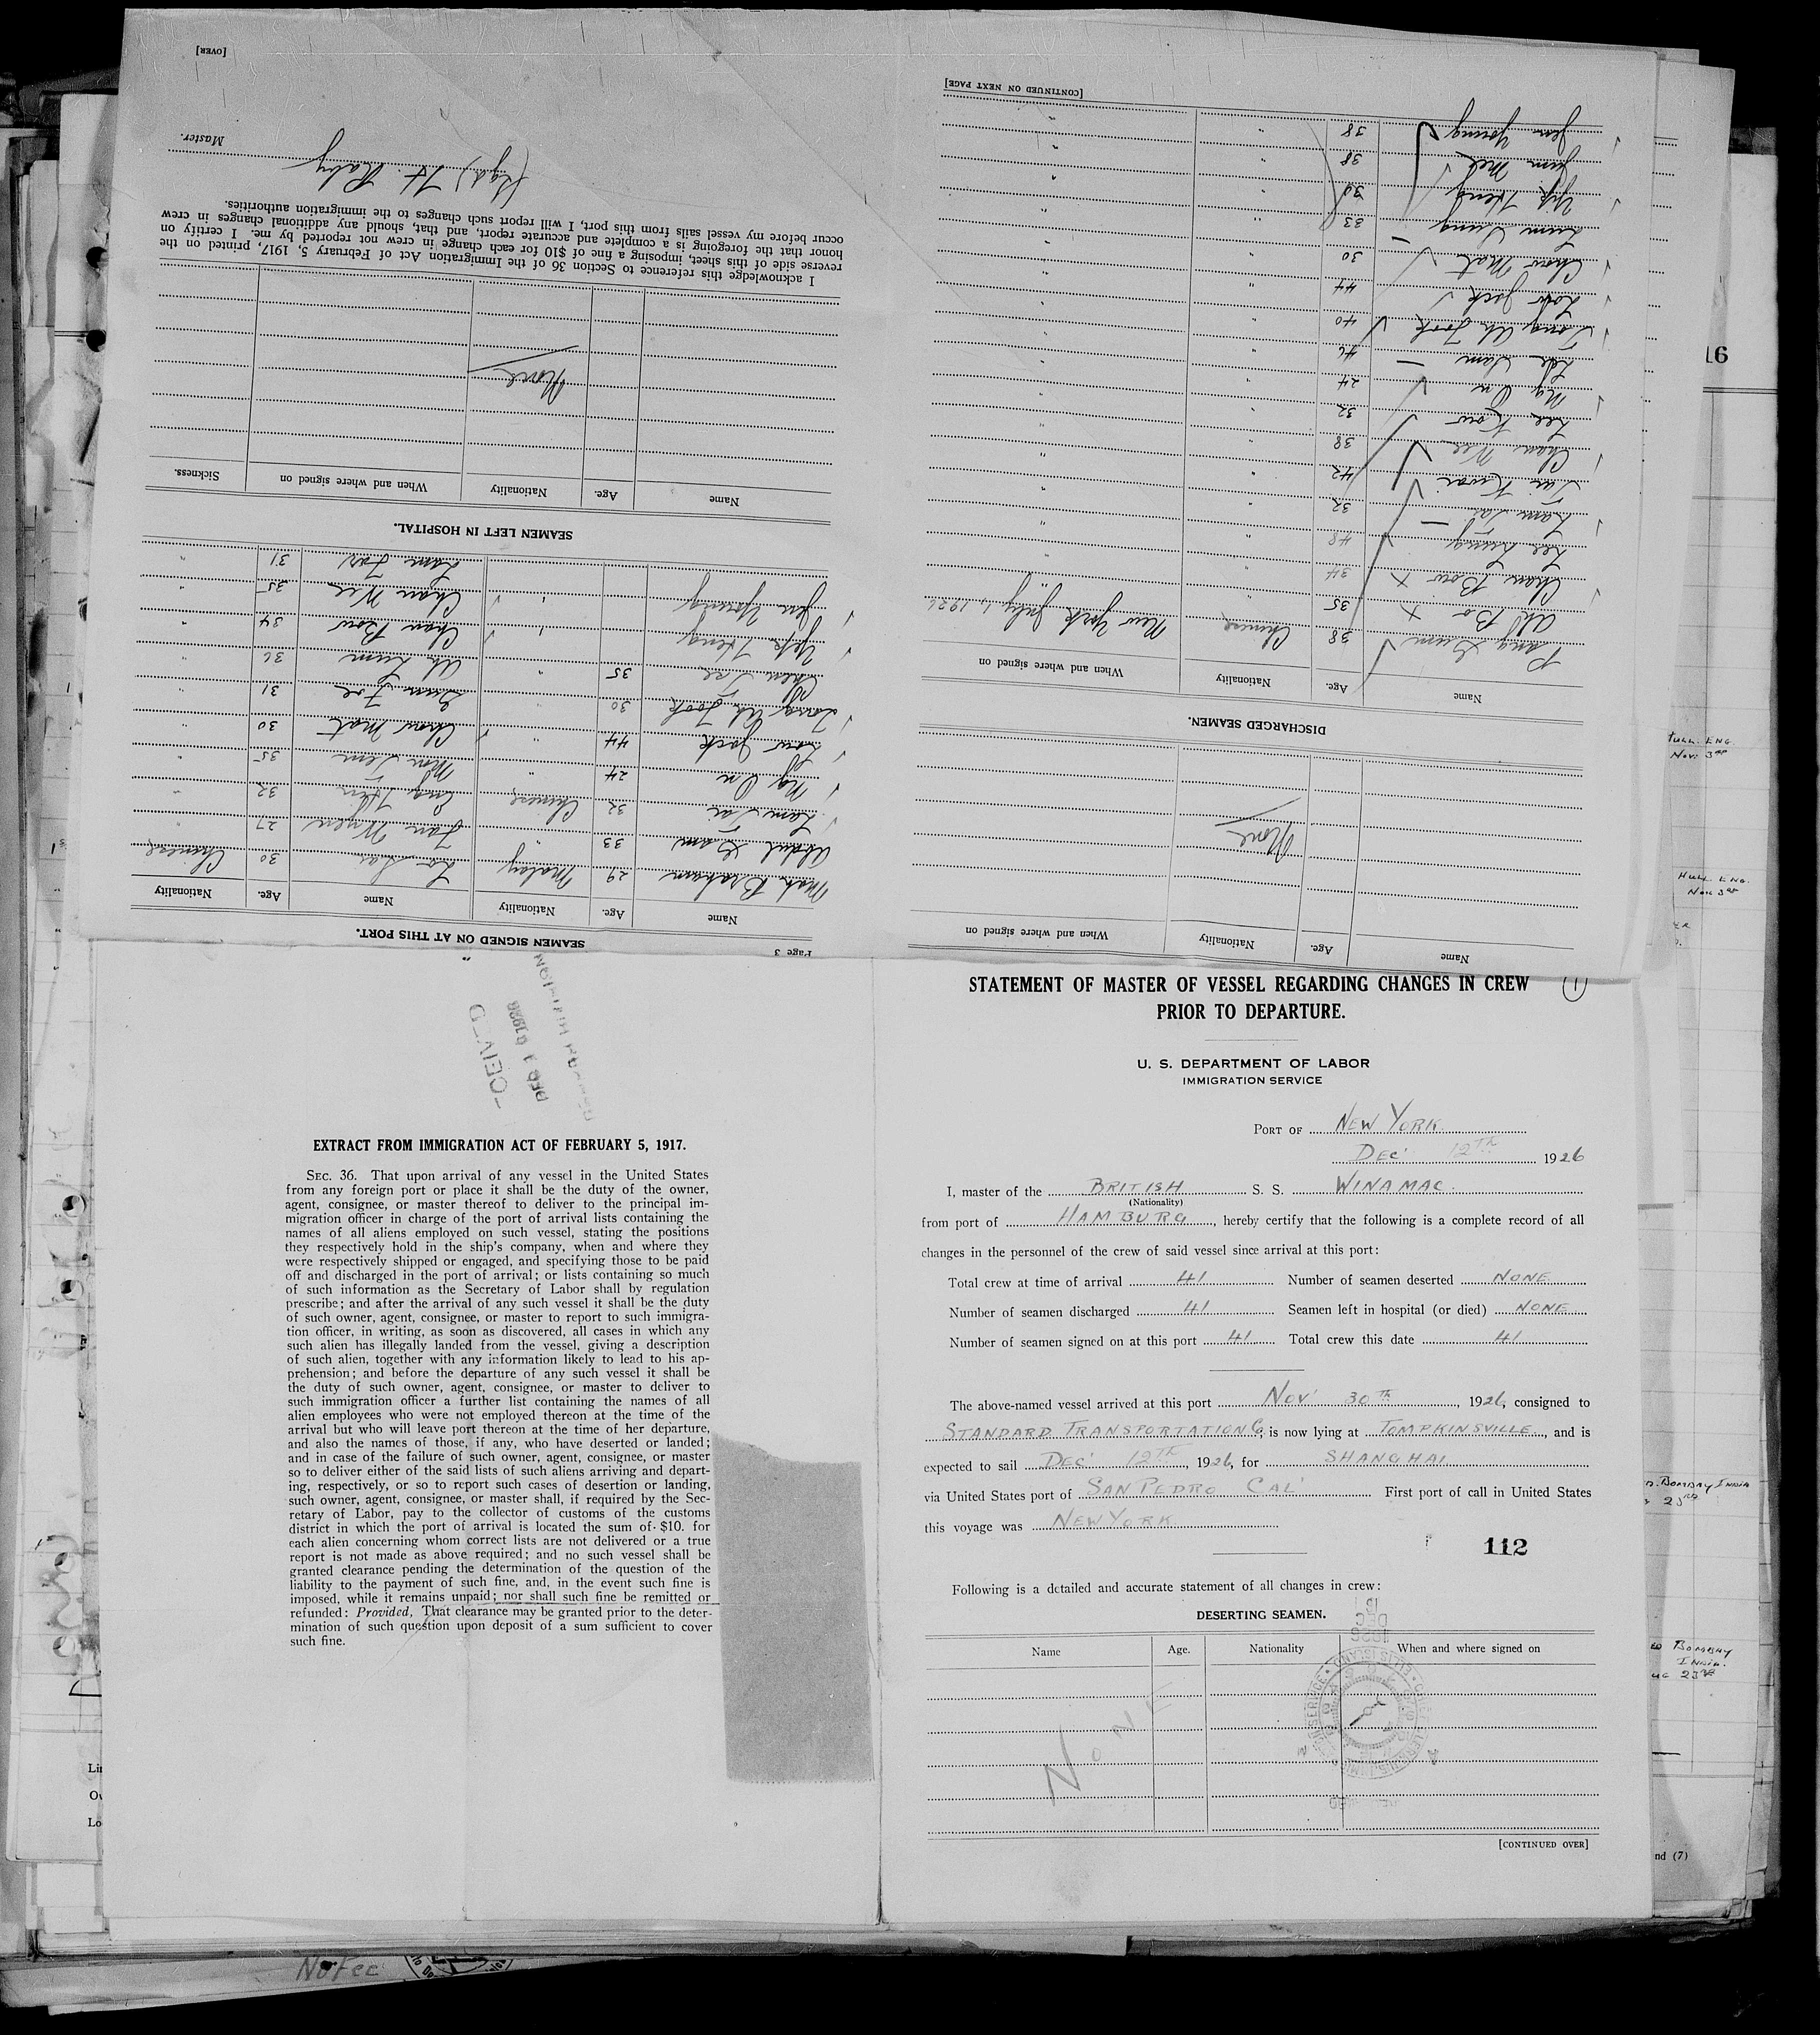 STATEMENT OF MASTER OF VESSEL REGARDING CHANGES IN CREW
PRIOR TO DEPARTURE.
U. S. DEPARTMENT OF LABOR
IMMIGRATION SERVICE
PORT OF NEW YORK
DEC' 12TH 1926
I, master of the BRITISH S. S. WINAMAC.
(Nationality)
from port of HAMBURG, hereby certify that the following is a complete record of all
changes in the personnel of the crew of said vessel since arrival at this port:
Total crew at time of arrival 41 Number of seamen deserted NONE
Number of seamen discharged 41 Seamen left in hospital (or died) NONE
Number of seamen signed on at this port 41 Total crew this date 41
The above-named vessel arrived at this port NOV' 30TH, 1926, consigned to
STANDARD TRANSPORTATION Co, is now lying at TOMPKINSVILLE, and is
expected to sail DEC' 12TH, 1926, for SHANGHAI
via United States port of SAN PEDRO CAL' First port of call in United States
this voyage was NEW YORK
112
Following is a detailed and accurate statement of all changes in crew:
DESERTING SEAMEN.
Name Age. Nationality When and where signed on
NONE
[CONTINUED OVER]
EXTRACT FROM IMMIGRATION ACT OF FEBRUARY 5, 1917.
SEC. 36. That upon arrival of any vessel in the United States
from any foreign port or place it shall be the duty of the owner,
agent, consignee, or master thereof to deliver to the principal im-
migration officer in charge of the port of arrival lists containing the
names of all aliens employed on such vessel, stating the positions
they respectively hold in the ship's company, when and where they
were respectively shipped or engaged, and specifying those to be paid
off and discharged in the port of arrival; or lists containing so much
of such information as the Secretary of Labor shall by regulation
prescribe; and after the arrival of any such vessel it shall be the duty
of such owner, agent, consignee, or master to report to such immigra-
tion officer, in writing, as soon as discovered, all cases in which any
such alien has illegally landed from the vessel, giving a description
of such alien, together with any information likely to lead to his ap-
prehension; and before the departure of any such vessel it shall be
the duty of such owner, agent, consignee, or master to deliver to
such immigration officer a further list containing the names of all
alien employees who were not employed thereon at the time of the
arrival but who will leave port thereon at the time of her departure,
and also the names of those, if any, who have deserted or landed;
and in case of the failure of such owner, agent, consignee, or master
so to deliver either of the said lists of such aliens arriving and depart-
ing, respectively, or so to report such cases of desertion or landing,
such owner, agent, consignee, or master shall, if required by the Sec-
retary of Labor, pay to the collector of customs of the customs
district in which the port of arrival is located the sum of $10. for
each alien concerning whom correct lists are not delivered or a true
report is not made as above required; and no such vessel shall be
granted clearance pending the determination of the question of the
liability to the payment of such fine, and, in the event such fine is
imposed, while it remains unpaid; nor shall such fine be remitted or
refunded: Provided, That clearance may be granted prior to the deter-
mination of such question upon deposit of a sum sufficient to cover
such fine.
Name Age. Nationality When and where signed on
None
DISCHARGED SEAMEN.
Name Age. Nationality When and where signed on
38 Chinese New York July 1, 1926
Ah Bo 35 "
Chan Bow 34 " "
Lee Leung 48 " "
Lam Tai 32 " "
Tai Kwai 42 " "
Chan Wee 38 " "
Lee Kow 32 " "
Ng On 24 " "
Lee Sam 46 " "
Tong Ah Fook 40 " "
Low Jack 44 " "
Chow Mat 30 " "
33 " "
Yip Heng " "
38 " "
Jen Young 38 " "
[CONTINUED ON NEXT PAGE]
Page 3
SEAMEN SIGNED ON AT THIS PORT.
Name Age. Nationality Name Age. Nationality
Mat Braham 29 Malay 30 Chinese
33 " 27 "
Lam Tai 32 Chinese 32 "
Ng On 24 " 35 "
Low Jack 44 " Chow Mat 30 "
30 31 "
35 " Ah Lum 36 "
Yip Heng " Chan Bow 34 "
Jen Young " Chan Wee 35 "
31 "
SEAMEN LEFT IN HOSPITAL.
Name Age. Nationality When and where signed on Sickness.
None
I acknowledge this reference to Section 36 of the Immigration Act of February 5, 1917, printed on the
reverse side of this sheet, imposing a fine of $10 for each change in crew not reported by me. I certify on
honor that the foregoing is a complete and accurate report, and that, should any additional changes in crew
occur before my vessel sails from this port, I will report such changes to the immigration authorities.
(Sgd) H. Raby Master.
[OVER]
16
HULL. ENG.
Nov. 3rd
BOMBAY INDIA
23rd
BOMBAY
INDIA.
nd (7)